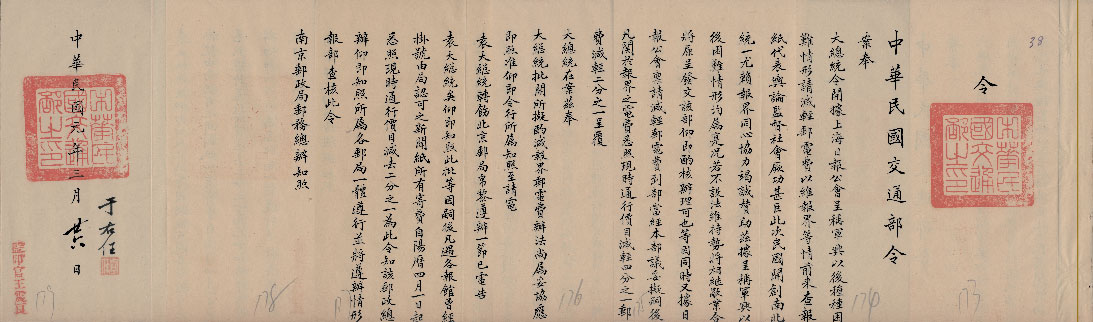 38
令
中華民國交通部令
案奉
大總統令開據上海日報公會呈稱軍興以後種種困
難情形請減輕郵電費以維報界等情前來查報
紙代表輿論監督社會厥功甚巨此次民國開創南北
統一尤賴報界同心協力竭誠贊助茲據呈稱軍興以
後困難情形均屬是況若不設法維持勢將相繼歇業合
將原呈發交該部仰即酌核辦理可也等因同時又據日
報公會電請減輕郵電費到部當經本部議妥擬嗣後
凡關於報界之電費悉照現時通行價目減輕四分之一郵
費減輕二分之一呈覆
大總統在案茲奉
大總統批開所擬酌減報界郵電費辦法尚屬妥協應
即照准仰即令行所屬知照至請電
袁大總統轉飭北京郵局帛黎遵辦一節已電告
袁大總統矣仰即知照此批等因嗣後凡遇各報館曾經
掛號由局認可之新聞紙所有寄費自陽曆四月一日起
悉照現時通行價目減去二分之一為此令知該郵政總
辦仰即知照所屬各郵局一體遵行並將遵辦情形
報部查核此令
南京郵政局郵務總辦知照
中華民國元年三月廿六日
于右任
中華民國交通部之印
中華民國交通部之印
173
174
176
178